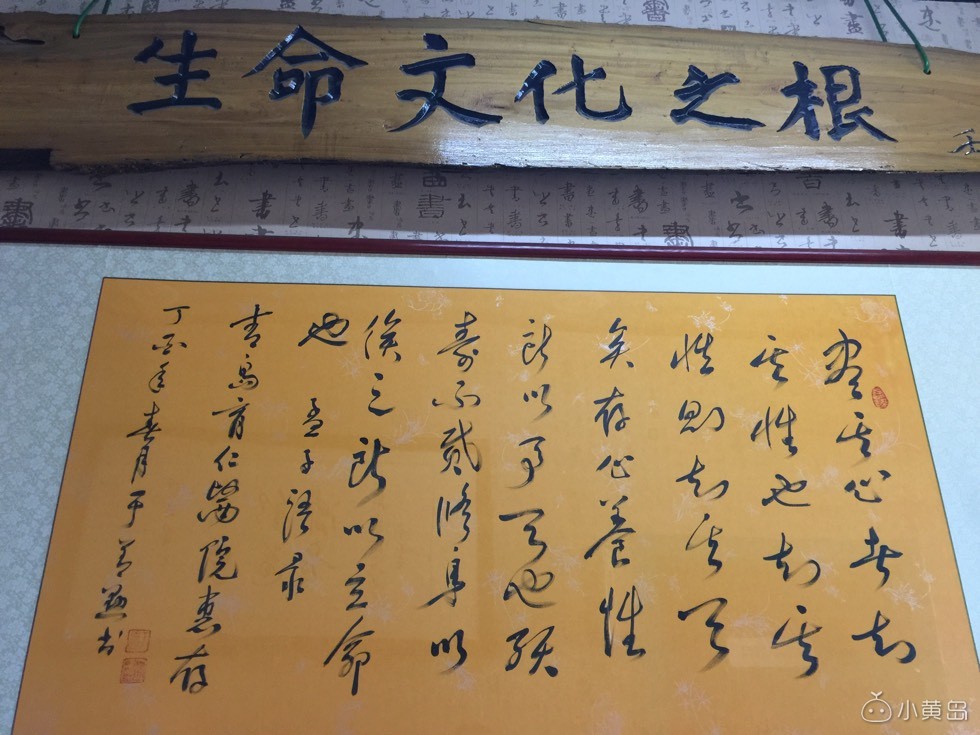 生命文化之根
盡其心者知
其性也知其
性則知其天
矣存心養性
所以事天也殀
壽不貳修身以
俟之所以立命
也 孟子語录
青島育仁醫院惠存
丁酉年春月于書
小黄岛